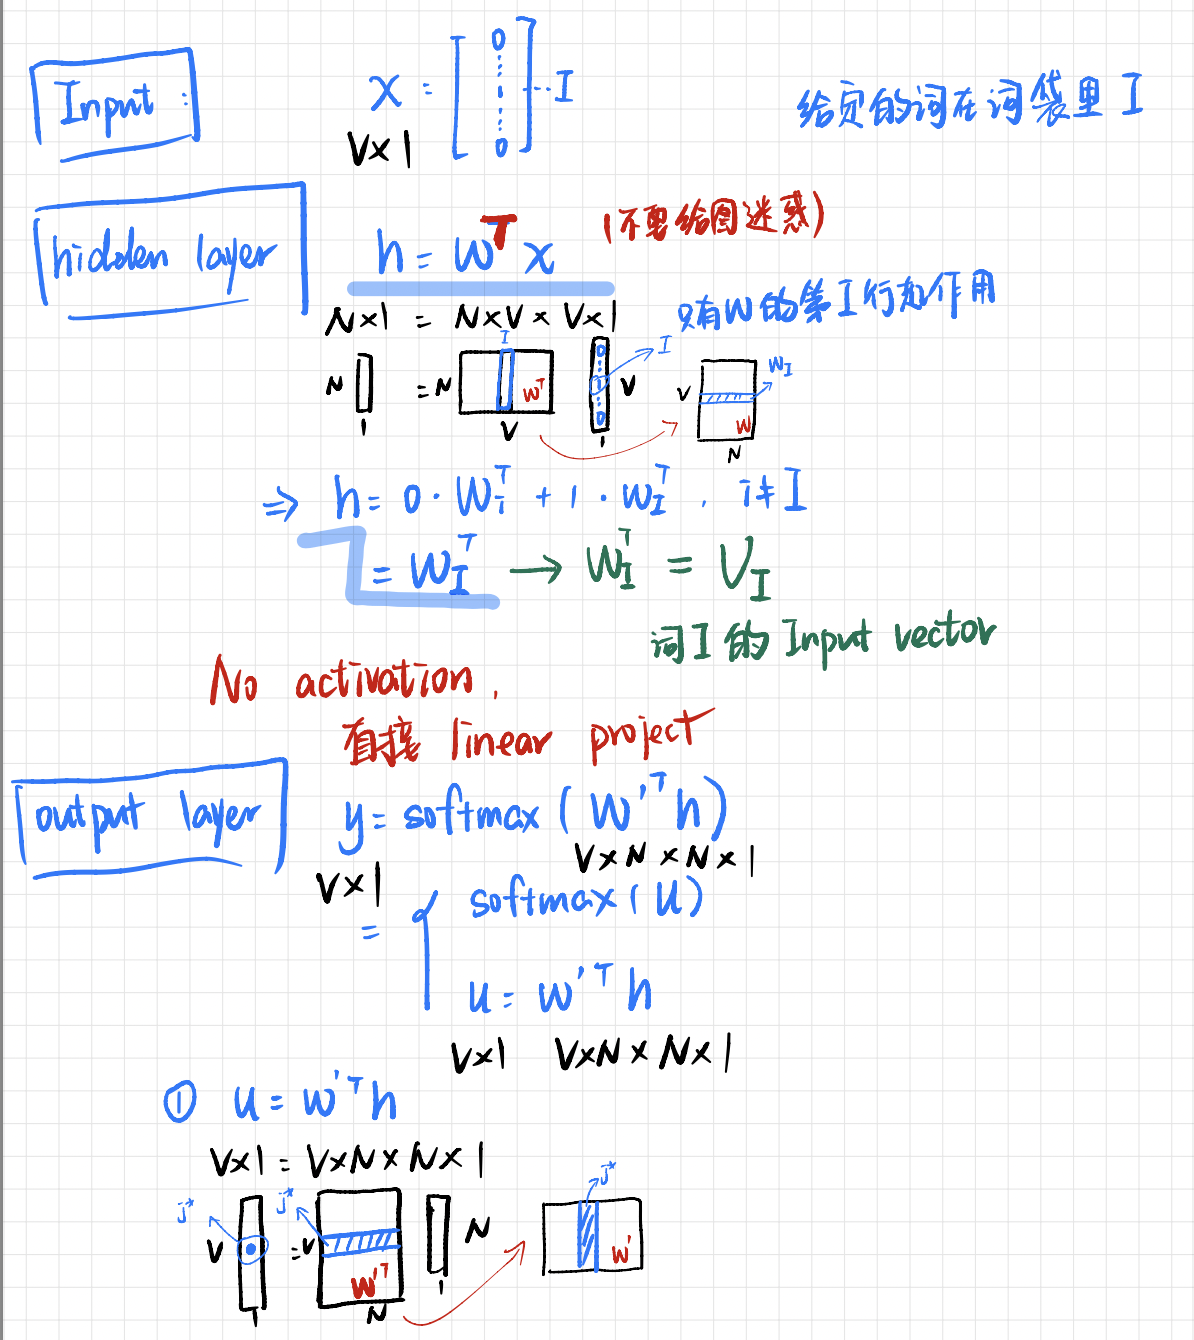 Input :
x = [ 0 ⋮ 1 ⋮ 0 ] ... I
V×1
给定的词在词袋里 I
hidden layer
h = W^T x
(不要给图迷惑)
N×1 = N×V × V×1
只有W的第I行起作用
N 1 = N I W^T V 0 1 0 I V 1 V W_I W N
⇒ h = 0 · W_i^T + 1 · W_I^T , i ≠ I
= W_I^T → W_I^T = V_I
词I的 Input vector
No activation,
直接 linear project
output layer
y = softmax ( W'^T h )
V×N × N×1
V×1
= { softmax( u )
u = W'^T h
V×1 V×N × N×1
① u = W'^T h
V×1 = V×N × N×1
j* V 1 = j* V W'^T N N 1 j* W'